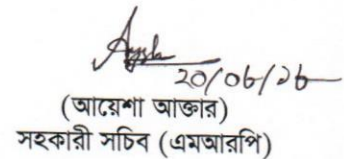 20/06/26
(আয়েশা আক্তার)
সহকারী সচিব (এমআরপি)